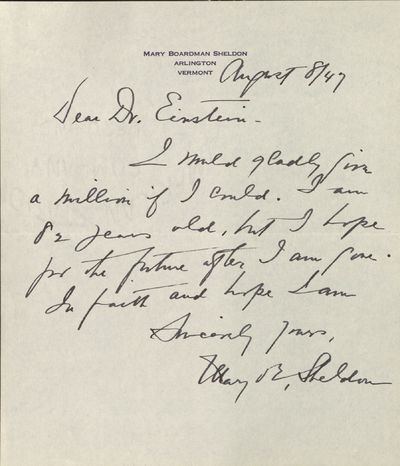 MARY BOARDMAN SHELDON
ARLINGTON
VERMONT
August 8/47
Dear Dr. Einstein -
I would gladly give
a million if I could. I am
82 years old, but I hope
for the future after I am gone.
In faith and hope I am
Sincerely yours,
Mary B. Sheldon